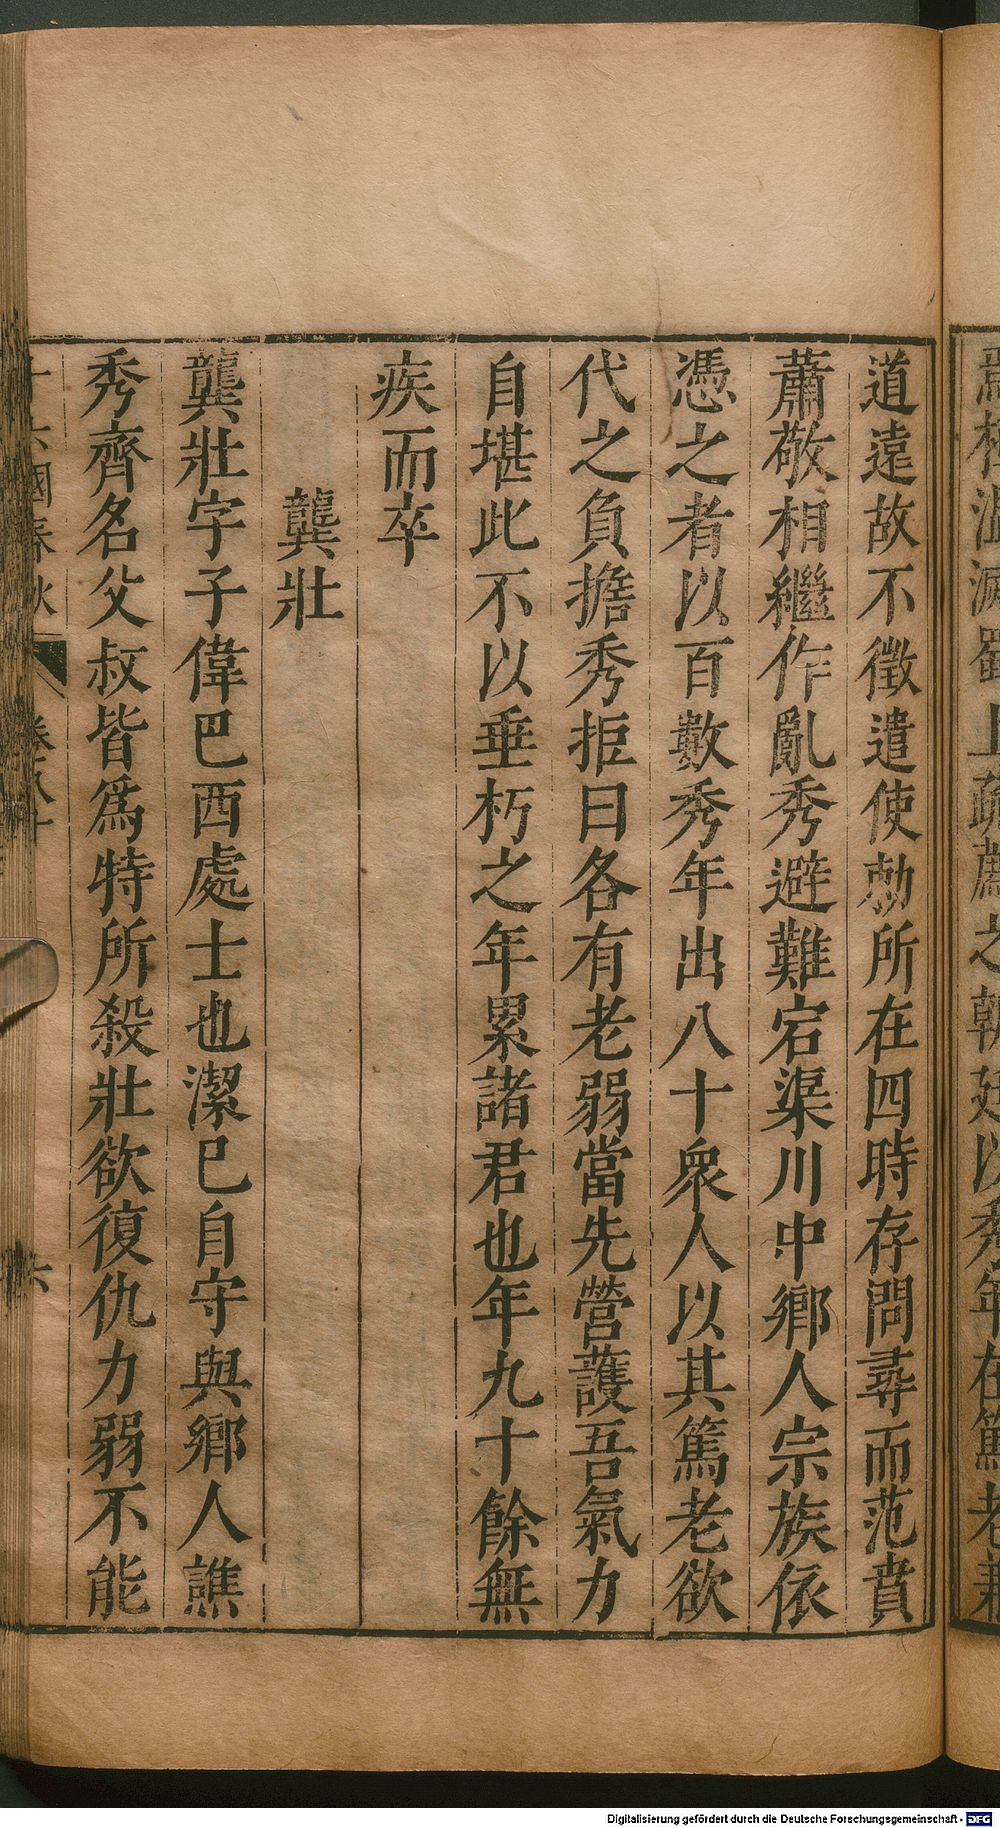 道遠故不徵遣使勅所在四時存問尋而范賁
蕭敬相繼作亂秀避難宕渠川中鄉人宗族依
憑之者以百數秀年出八十衆人以其篤老欲
代之負擔秀拒曰各有老弱當先營護吾氣力
自堪此不以垂朽之年累諸君也年九十餘無
疾而卒
龔壯
龔壯字子偉巴西處士也潔已自守與鄉人譙
秀齊名父叔皆爲特所殺壯欲復仇力弱不能
十六國春秋
六
Digitalisierung gefördert durch die Deutsche Forschungsgemeinschaft - DFG